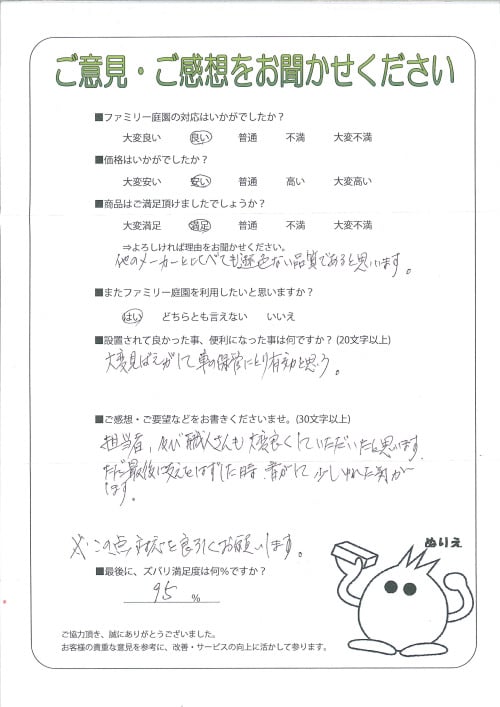 ご意見・ご感想をお聞かせください
■ファミリー庭園の対応はいかがでしたか？
大変良い 良い 普通 不満 大変不満
■価格はいかがでしたか？
大変安い 安い 普通 高い 大変高い
■商品はご満足頂けましたでしょうか？
大変満足 満足 普通 不満 大変不満
⇒よろしければ理由をお聞かせください。
他のメーカーと比べても遜色ない品質であると思います。
■またファミリー庭園を利用したいと思いますか？
はい どちらとも言えない いいえ
■設置されて良かった事、便利になった事は何ですか？(20文字以上)
大変見ばえがして車の保管にとり有効と思う。
■ご感想・ご要望などをお書きくださいませ。(30文字以上)
担当者、及び職人さんも大変良くしていただいたと思います。
ただ最後に支えをはずした時、
少し
ます。
※この点、対応を
お願いします。
ぬりえ
■最後に、ズバリ満足度は何％ですか？
95 %
ご協力頂き、誠にありがとうございました。
お客様の貴重な意見を参考に、改善・サービスの向上に活かして参ります。